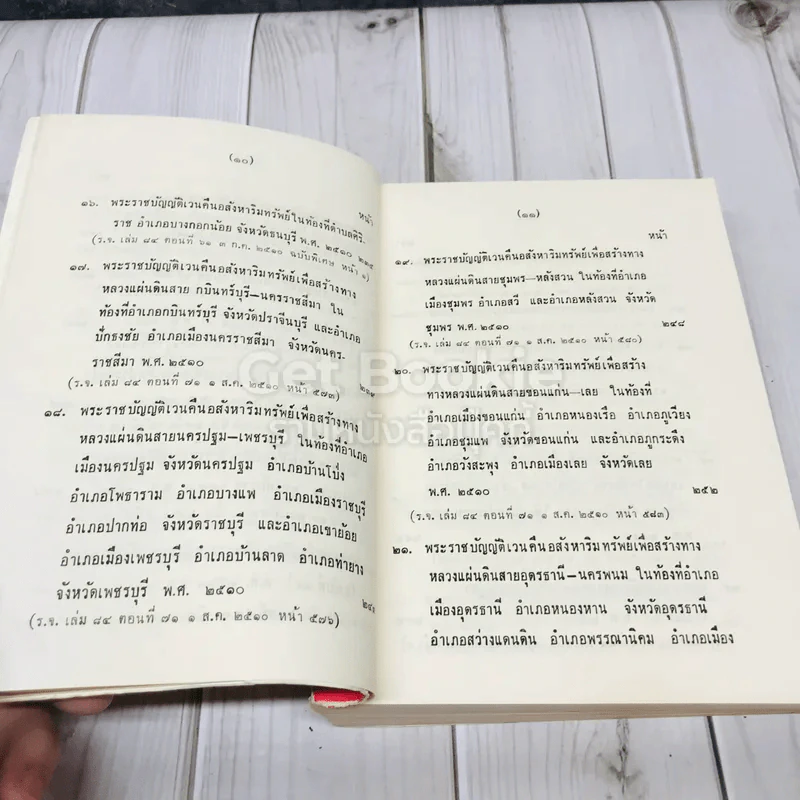 (๑๐)
หน้า
๑๖. พระราชบัญญัติเวนคืนอสังหาริมทรัพย์ในท้องที่ตำบลศิริ-
ราช อำเภอบางกอกน้อย จังหวัดธนบุรี พ.ศ. ๒๕๑๐
(ร.จ. เล่ม ๘๔ ตอนที่ ๖๑ ๓ ก.ค. ๒๕๑๐ ฉบับพิเศษ หน้า ๑)
๑๗. พระราชบัญญัติเวนคืนอสังหาริมทรัพย์เพื่อสร้างทาง
หลวงแผ่นดินสาย กบินทร์บุรี—นครราชสีมา ใน
ท้องที่อำเภอกบินทร์บุรี จังหวัดปราจีนบุรี และอำเภอ
ปักธงชัย อำเภอเมืองนครราชสีมา จังหวัดนคร-
ราชสีมา พ.ศ. ๒๕๑๐
(ร.จ. เล่ม ๘๔ ตอนที่ ๗๑ ๑ ส.ค. ๒๕๑๐ หน้า ๕๗๓)
๑๘. พระราชบัญญัติเวนคืนอสังหาริมทรัพย์เพื่อสร้างทาง
หลวงแผ่นดินสายนครปฐม—เพชรบุรี ในท้องที่อำเภอ
เมืองนครปฐม จังหวัดนครปฐม อำเภอบ้านโป่ง
อำเภอโพธาราม อำเภอบางแพ อำเภอเมืองราชบุรี
อำเภอปากท่อ จังหวัดราชบุรี และอำเภอเขาย้อย
อำเภอเมืองเพชรบุรี อำเภอบ้านลาด อำเภอท่ายาง
จังหวัดเพชรบุรี พ.ศ. ๒๕๑๐
(ร.จ. เล่ม ๘๔ ตอนที่ ๗๑ ๑ ส.ค. ๒๕๑๐ หน้า ๕๗๖)
(๑๑)
หน้า
๑๙. พระราชบัญญัติเวนคืนอสังหาริมทรัพย์เพื่อสร้างทาง
หลวงแผ่นดินสายชุมพร—หลังสวน ในท้องที่อำเภอ
เมืองชุมพร อำเภอสวี และอำเภอหลังสวน จังหวัด
ชุมพร พ.ศ. ๒๕๑๐ ๒๔๘
(ร.จ. เล่ม ๘๔ ตอนที่ ๗๑ ๑ ส.ค. ๒๕๑๐ หน้า ๕๘๐)
๒๐. พระราชบัญญัติเวนคืนอสังหาริมทรัพย์เพื่อสร้าง
ทางหลวงแผ่นดินสายขอนแก่น—เลย ในท้องที่
อำเภอเมืองขอนแก่น อำเภอหนองเรือ อำเภอภูเวียง
อำเภอชุมแพ จังหวัดขอนแก่น และอำเภอภูกระดึง
อำเภอวังสะพุง อำเภอเมืองเลย จังหวัดเลย
พ.ศ. ๒๕๑๐ ๒๕๒
(ร.จ. เล่ม ๘๔ ตอนที่ ๗๑ ๑ ส.ค. ๒๕๑๐ หน้า ๕๘๓)
๒๑. พระราชบัญญัติเวนคืนอสังหาริมทรัพย์เพื่อสร้างทาง
หลวงแผ่นดินสายอุดรธานี—นครพนม ในท้องที่อำเภอ
เมืองอุดรธานี อำเภอหนองหาน จังหวัดอุดรธานี
อำเภอสว่างแดนดิน อำเภอพรรณานิคม อำเภอเมือง
Get Bookie